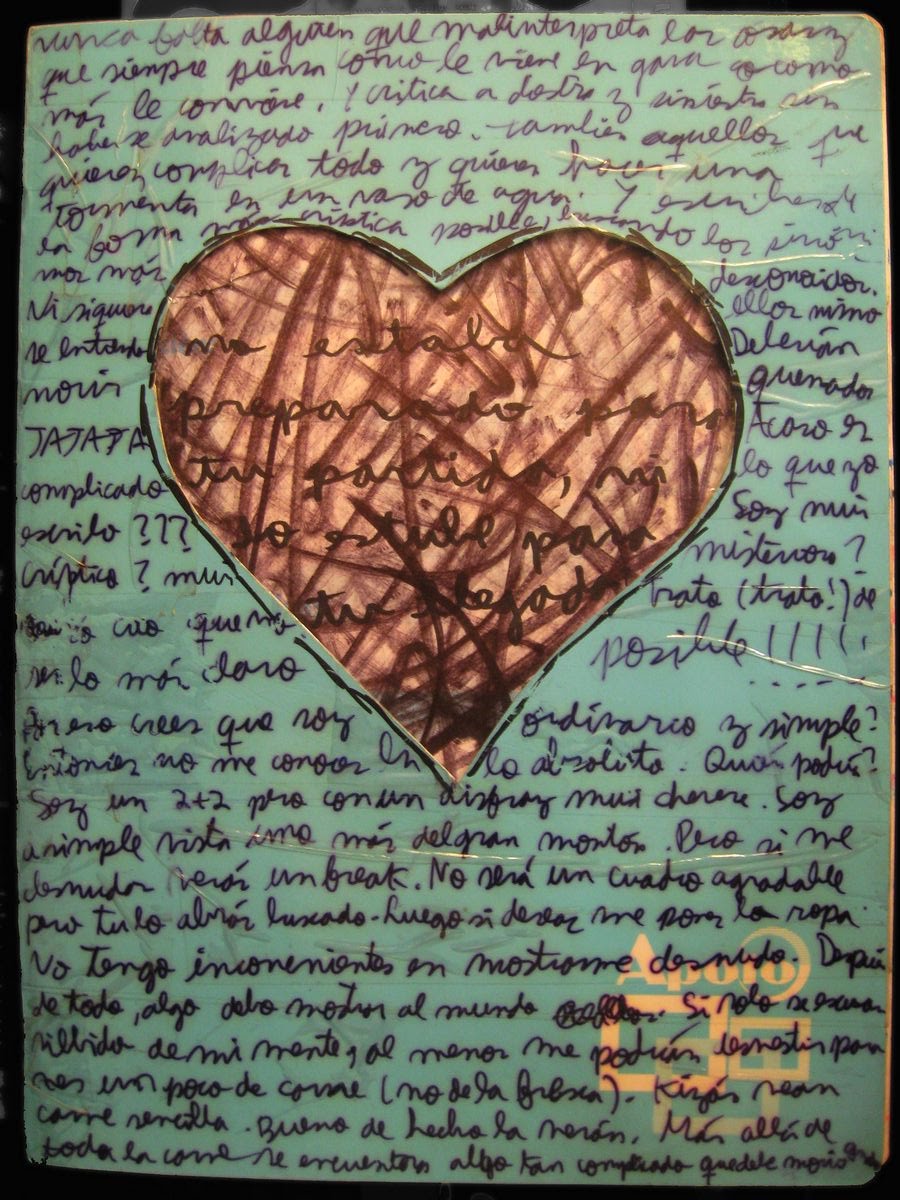 nunca falta alguien que malinterpreta las cosas y
que siempre piensa como le viene en gana o como
más le conviene. Y critica a diestra y siniestra sin
haberse analizado primero. También aquellos que
quieren complicar todo y quieren hacer una
tormenta en un vaso de agua. Y escriben de
la forma más críptica posible, buscando los sinóni
mos más desconocidos.
Ni siquiera ellos mismo
se entienden Deberían
morir quemados
JAJAJA Acaso es
complicado lo que yo
escribo ??? Soy muy
críptico ? muy misterioso ?
yo creo que no trato (trato!) de
ser lo más claro posible !!!!!
no estaba
preparado para
tu partida, ni
lo estube para
tu llegada
Por eso crees que soy ordinario y simple?
Entonces no me conoces en lo absoluto. Quién podría?
Soy un 2+2 pero con un disfraz muy chevere. Soy
a simple vista uno más del gran montón. Pero si me
desnudas verás un break. No será un cuadro agradable
pero tu lo abrás buscado. Luego si deseas me pones la ropa.
No tengo inconvenientes en mostrarme desnudo. Después
de todo, algo debo mostrar al mundo. Si solo se escuchan
silbidos de mi mente, al menos me podrían desvestir para
ver un poco de carne (no de la fresca). Kizás vean
carne sencilla. Bueno de hecho la verán. Más allá de
toda la carne se encuentra algo tan complicado que debe morir
Apolo